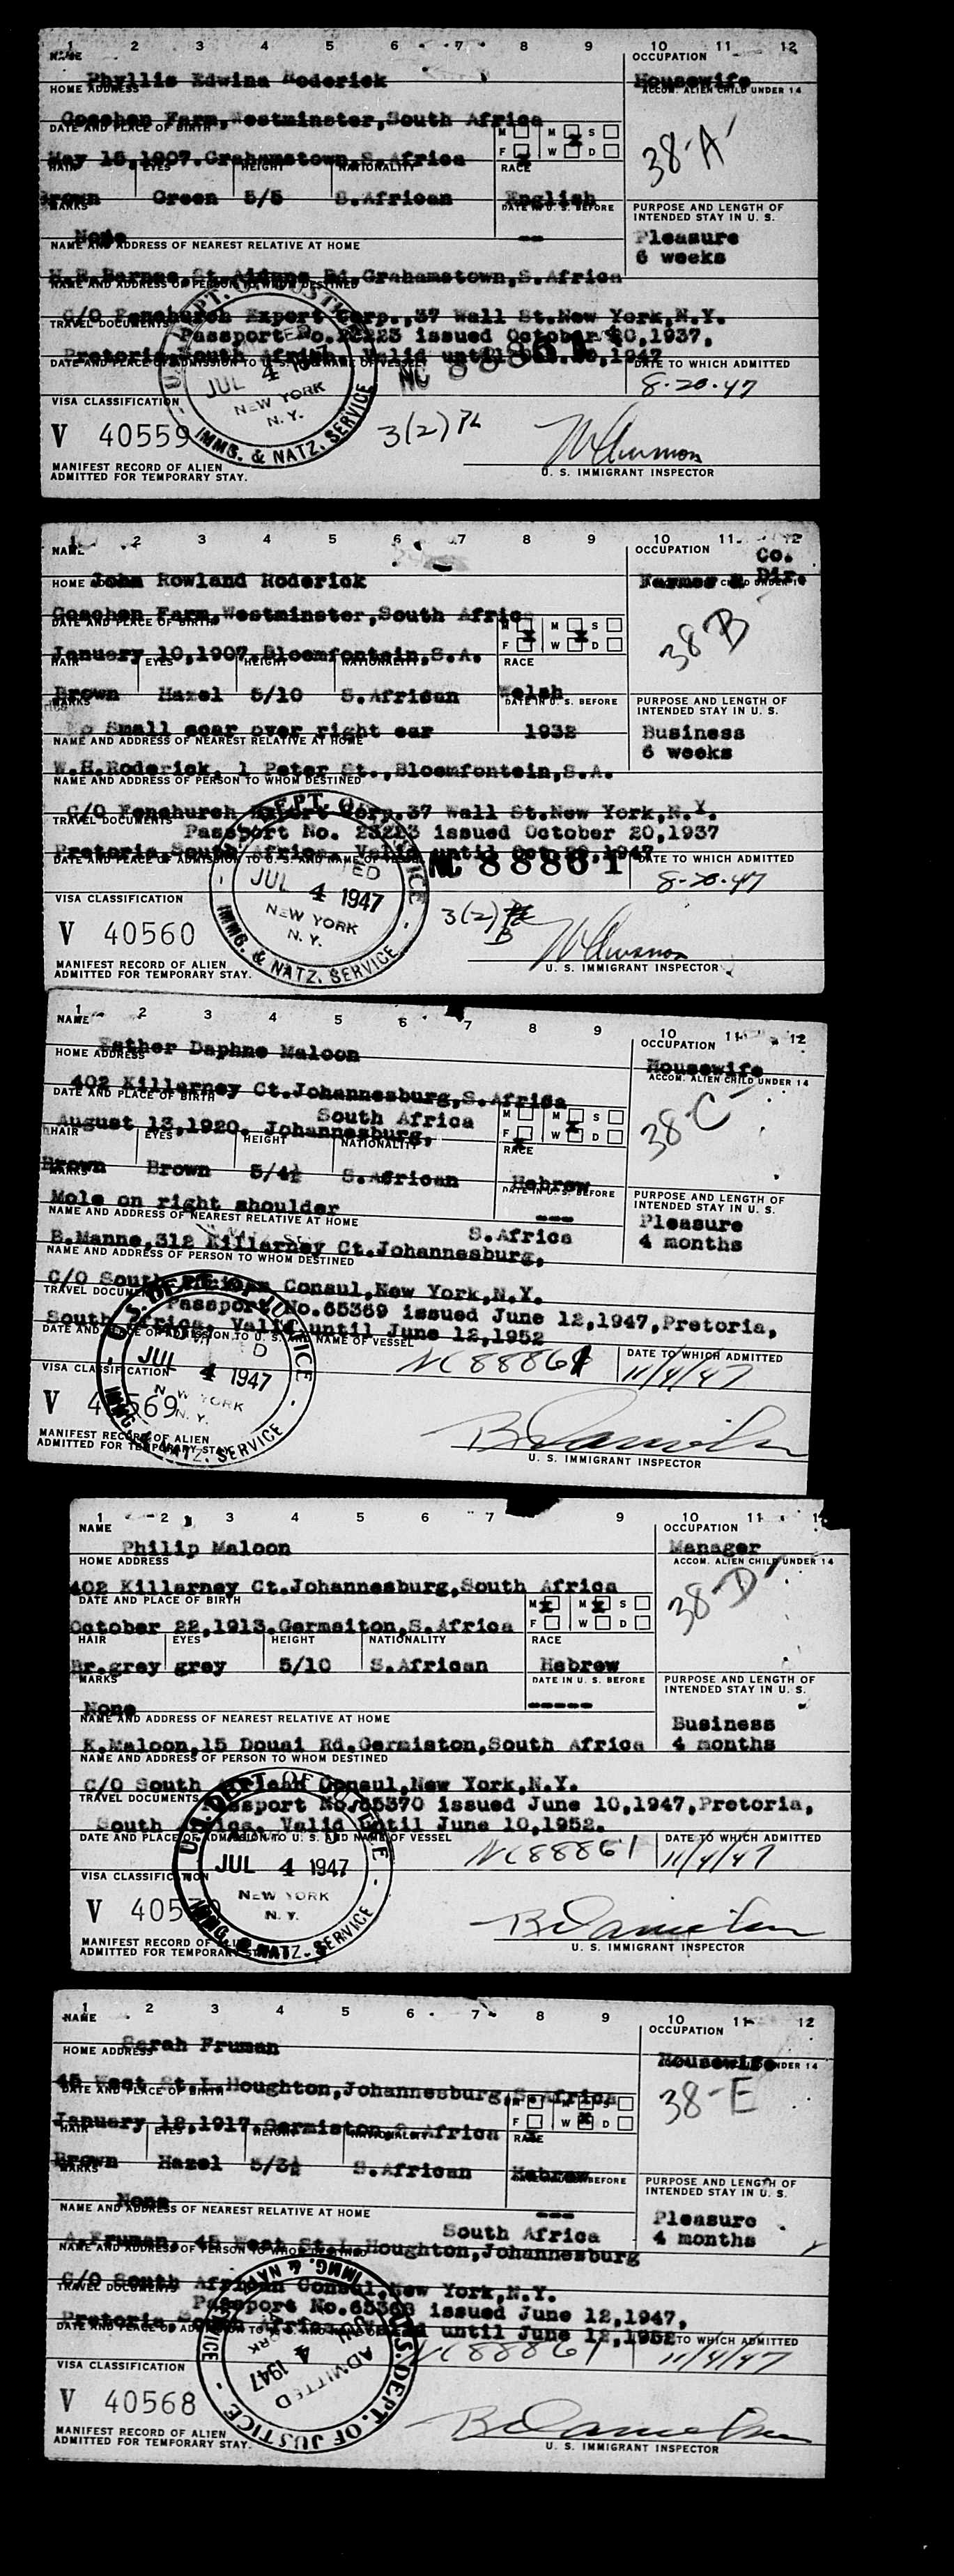 1 2 3 4 5 6 7 8 9 10 11 12
NAME OCCUPATION
Phyllis Edwina Roderick Housewife
HOME ADDRESS ACCOM. ALIEN CHILD UNDER 14
Goschen Farm,Westminster,South Africa
DATE AND PLACE OF BIRTH M M S
38-A
May 15,1907.Grahamstown,S.Africa F W D
HAIR EYES HEIGHT NATIONALITY RACE
Brown Green 5/5 S.African English
MARKS DATE IN U. S. BEFORE PURPOSE AND LENGTH OF INTENDED STAY IN U. S.
None -- Pleasure
NAME AND ADDRESS OF NEAREST RELATIVE AT HOME 6 weeks
St.Aidans Rd.Grahamstown,S.Africa
NAME AND ADDRESS OF PERSON TO WHOM DESTINED
C/O Fenchurch Export Corp.,37 Wall St.New York,N.Y.
TRAVEL DOCUMENTS
Passport No. issued October 20,1937,
Pretoria,South Africa. Valid until Oct.20,1947
DATE AND PLACE OF ADMISSION TO U. S. AND NAME OF VESSEL DATE TO WHICH ADMITTED
U.S. DEPT. OF JUSTICE ADMITTED JUL 4 1947 NEW YORK N.Y. IMMG. & NATZ. SERVICE
NC 88861 8-20-47
VISA CLASSIFICATION
V 40559 3(2)
MANIFEST RECORD OF ALIEN
ADMITTED FOR TEMPORARY STAY.
U. S. IMMIGRANT INSPECTOR
1 2 3 4 5 6 7 8 9 10 11 12
NAME OCCUPATION
John Rowland Roderick Farmer & Co. Dir.
HOME ADDRESS
Goschen Farm,Westminster,South Africa
DATE AND PLACE OF BIRTH M M S
38 B
January 10,1907,Bloemfontein,S.A. F W D
HAIR EYES HEIGHT NATIONALITY RACE
Brown Hazel 5/10 S.African Welsh
MARKS DATE IN U. S. BEFORE PURPOSE AND LENGTH OF INTENDED STAY IN U. S.
Small scar over right ear 1932 Business
NAME AND ADDRESS OF NEAREST RELATIVE AT HOME 6 weeks
W.H.Roderick, 1 Peter St.,Bloemfontein,S.A.
NAME AND ADDRESS OF PERSON TO WHOM DESTINED
C/O Fenchurch Export Corp.37 Wall St.New York,N.Y.
TRAVEL DOCUMENTS
Passport No. issued October 20,1937
Pretoria,South Africa. Valid until Oct 20,1947
DATE AND PLACE OF ADMISSION TO U. S. AND NAME OF VESSEL DATE TO WHICH ADMITTED
U.S. DEPT. OF JUSTICE ADMITTED JUL 4 1947 NEW YORK N.Y. IMMG. & NATZ. SERVICE
NC 88861 8-20-47
VISA CLASSIFICATION
V 40560 3(2) B
MANIFEST RECORD OF ALIEN
ADMITTED FOR TEMPORARY STAY.
U. S. IMMIGRANT INSPECTOR
1 2 3 4 5 6 7 8 9 10 11 12
NAME OCCUPATION
Esther Daphne Maloon Housewife
HOME ADDRESS ACCOM. ALIEN CHILD UNDER 14
402 Killarney Ct.Johannesburg,S.Africa
DATE AND PLACE OF BIRTH M M S
38-C
South Africa
August 13,1920. Johannesburg, F W D
HAIR EYES HEIGHT NATIONALITY RACE
Brown Brown 5/4½ S.African Hebrew
MARKS DATE IN U. S. BEFORE PURPOSE AND LENGTH OF INTENDED STAY IN U. S.
Mole on right shoulder --- Pleasure
NAME AND ADDRESS OF NEAREST RELATIVE AT HOME 4 months
S.Africa
B.Manne,312 Killarney Ct.Johannesburg,
NAME AND ADDRESS OF PERSON TO WHOM DESTINED
C/O South African Consul,New York,N.Y.
TRAVEL DOCUMENTS
Passport No.65369 issued June 12,1947,Pretoria,
South Africa. Valid until June 12,1952
DATE AND PLACE OF ADMISSION TO U. S. AND NAME OF VESSEL DATE TO WHICH ADMITTED
U.S. DEPT. OF JUSTICE ADMITTED JUL 4 1947 NEW YORK N.Y. IMMG. & NATZ. SERVICE
NC 88861 11/4/47
VISA CLASSIFICATION
V 40569
MANIFEST RECORD OF ALIEN
ADMITTED FOR TEMPORARY STAY.
U. S. IMMIGRANT INSPECTOR
1 2 3 4 5 6 7 9 10 11
NAME OCCUPATION
Philip Maloon Manager
HOME ADDRESS ACCOM. ALIEN CHILD UNDER 14
402 Killarney Ct.Johannesburg,South Africa
DATE AND PLACE OF BIRTH M M S
38-D
October 22,1913.Germsiton,S.Africa F W D
HAIR EYES HEIGHT NATIONALITY RACE
Br.grey grey 5/10 S.African Hebrew
MARKS DATE IN U. S. BEFORE PURPOSE AND LENGTH OF INTENDED STAY IN U. S.
None ----- Business
NAME AND ADDRESS OF NEAREST RELATIVE AT HOME
K.Maloon,15 Douai Rd.Germiston,South Africa 4 months
NAME AND ADDRESS OF PERSON TO WHOM DESTINED
C/O South African Consul,New York,N.Y.
TRAVEL DOCUMENTS
Passport No.65370 issued June 10,1947,Pretoria,
South Africa. Valid until June 10,1952.
DATE AND PLACE OF ADMISSION TO U. S. AND NAME OF VESSEL DATE TO WHICH ADMITTED
U.S. DEPT. OF JUSTICE JUL 4 1947 NEW YORK N.Y. IMMG. & NATZ. SERVICE
NC 88861 11/4/47
VISA CLASSIFICATION
V 40570
MANIFEST RECORD OF ALIEN
ADMITTED FOR TEMPORARY STAY.
U. S. IMMIGRANT INSPECTOR
1 2 3 4 5 6 7 8 9 10 11 12
NAME OCCUPATION
Sarah Fruman Housewife
HOME ADDRESS UNDER 14
45 West St.L.Houghton,Johannesburg,S.Africa
DATE AND PLACE OF BIRTH M M S
38-E
January 12,1917.Germiston,S.Africa F W D
HAIR EYES HEIGHT NATIONALITY RACE
Brown Hazel 5/3½ S.African Hebrew
MARKS BEFORE PURPOSE AND LENGTH OF INTENDED STAY IN U. S.
None --- Pleasure
NAME AND ADDRESS OF NEAREST RELATIVE AT HOME 4 months
South Africa
A.Fruman, 45 West St.L.Houghton,Johannesburg
NAME AND ADDRESS OF PERSON TO WHOM DESTINED
C/O South African Consul,New York,N.Y.
TRAVEL DOCUMENTS
Passport No.65368 issued June 12,1947,
Pretoria South Africa. Valid until June 12,1952
DATE AND PLACE OF ADMISSION TO U. S. AND NAME TO WHICH ADMITTED
U.S. DEPT. OF JUSTICE ADMITTED JUL 4 1947 NEW YORK IMMG. & NATZ. SERVICE
NC 88861 11/4/47
VISA CLASSIFICATION
V 40568
MANIFEST RECORD OF ALIEN
ADMITTED FOR TEMPORARY STAY.
U. S. IMMIGRANT INSPECTOR